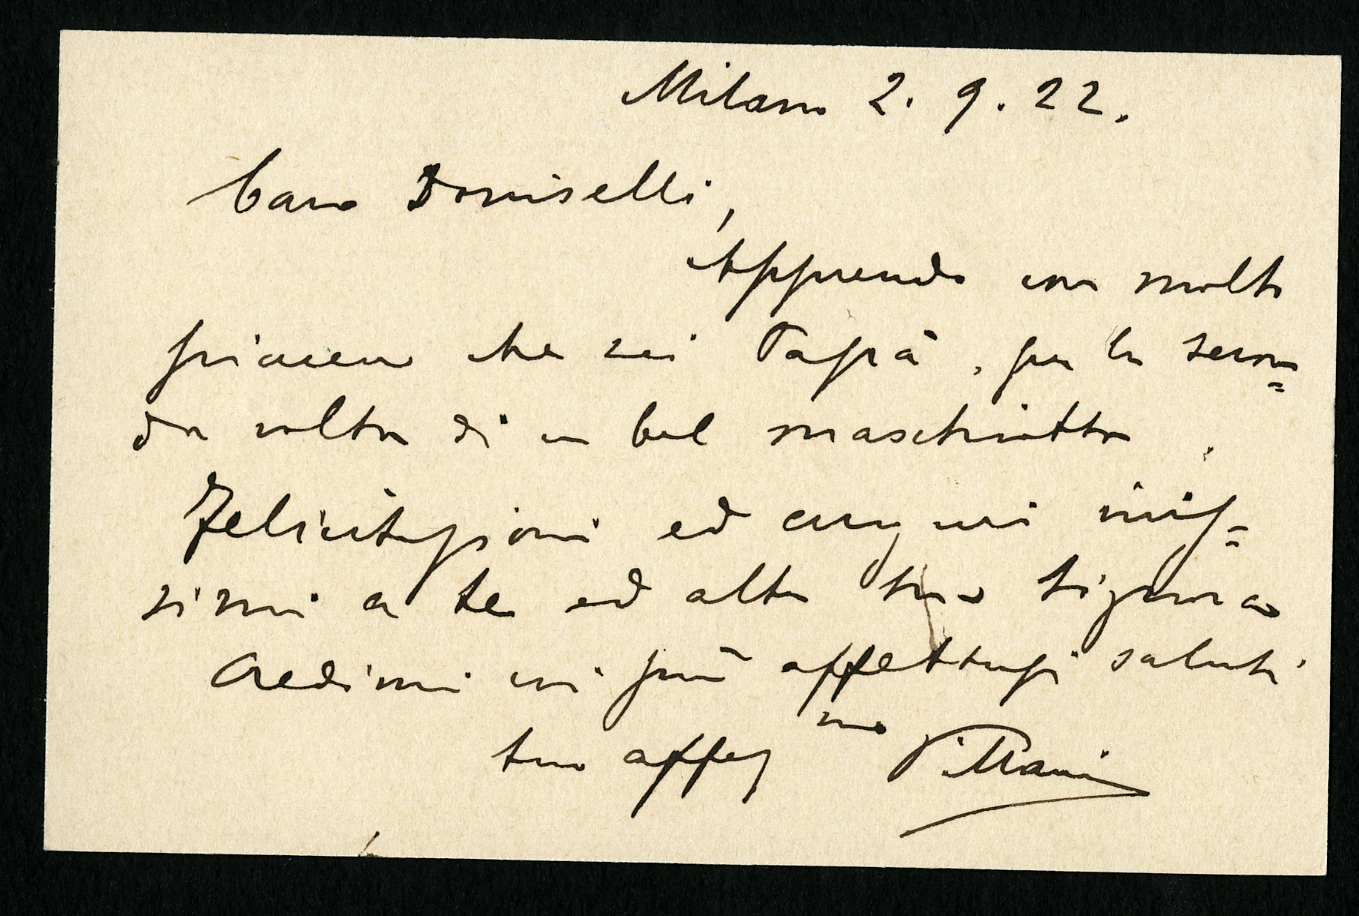 Milano 2. 9. 22.
Caro Doniselli,
Apprendo con molto
piacere che sei Papà, per la secon=
da volta di un bel maschiotto.
Felicitazioni ed auguri vivis=
simi a te ed alla tua Signora
Credimi coi più affettuosi saluti
tuo aff.mo